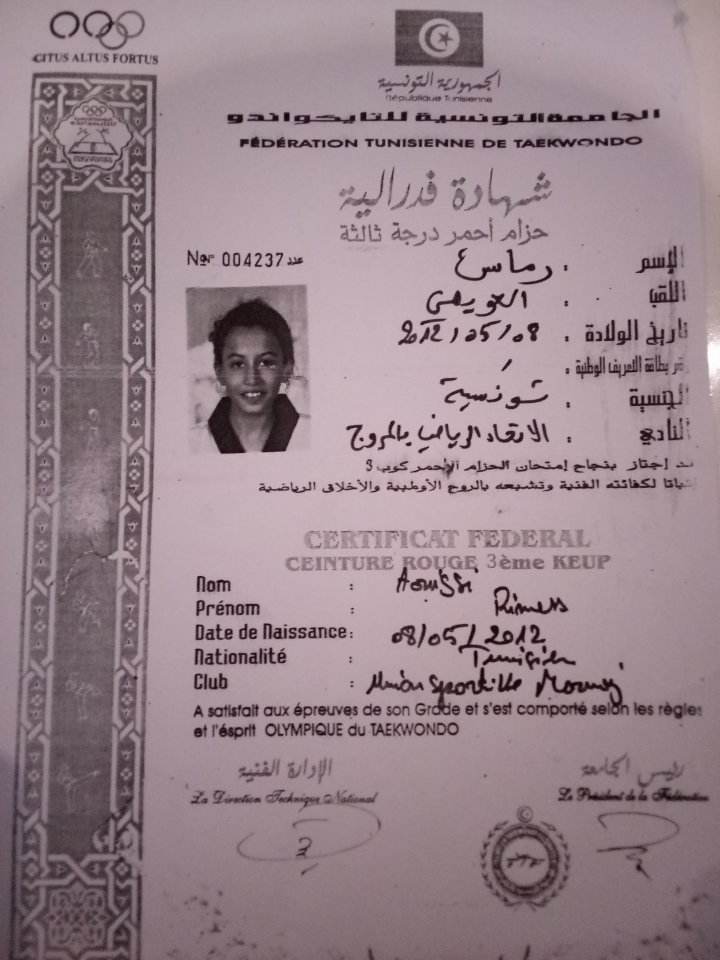 CITUS ALTUS FORTUS
الجمهورية التونسية
République Tunisienne
الجامعة التونسية للتايكواندو
FÉDÉRATION TUNISIENNE DE TAEKWONDO
شهادة فدرالية
حزام أحمر درجة ثالثة
Nor 004237 عدد
الإسم : رماس
اللقب :
تاريخ الولادة : 2012/05/08
رقم بطاقة التعريف الوطنية :
الجنسية : تونسية
النادي : الاتحاد الرياضي بالمروج
قد إجتاز بنجاح إمتحان الحزام الأحمر كوب 3
لكفائته الفنية وتشبعه بالروح الأولمبية والأخلاق الرياضية
CERTIFICAT FEDERAL
CEINTURE ROUGE 3ème KEUP
Nom : Aouissi
Prénom : Rimess
Date de Naissance: 08/05/2012
Nationalité : Tunisien
Club : Union Sportive Mourouj
A satisfait aux épreuves de son Grade et s'est comporté selon les règles
et l'ésprit OLYMPIQUE du TAEKWONDO
الإدارة الفنية
رئيس الجامعة
La Direction Technique National
Le Président de la Fédération